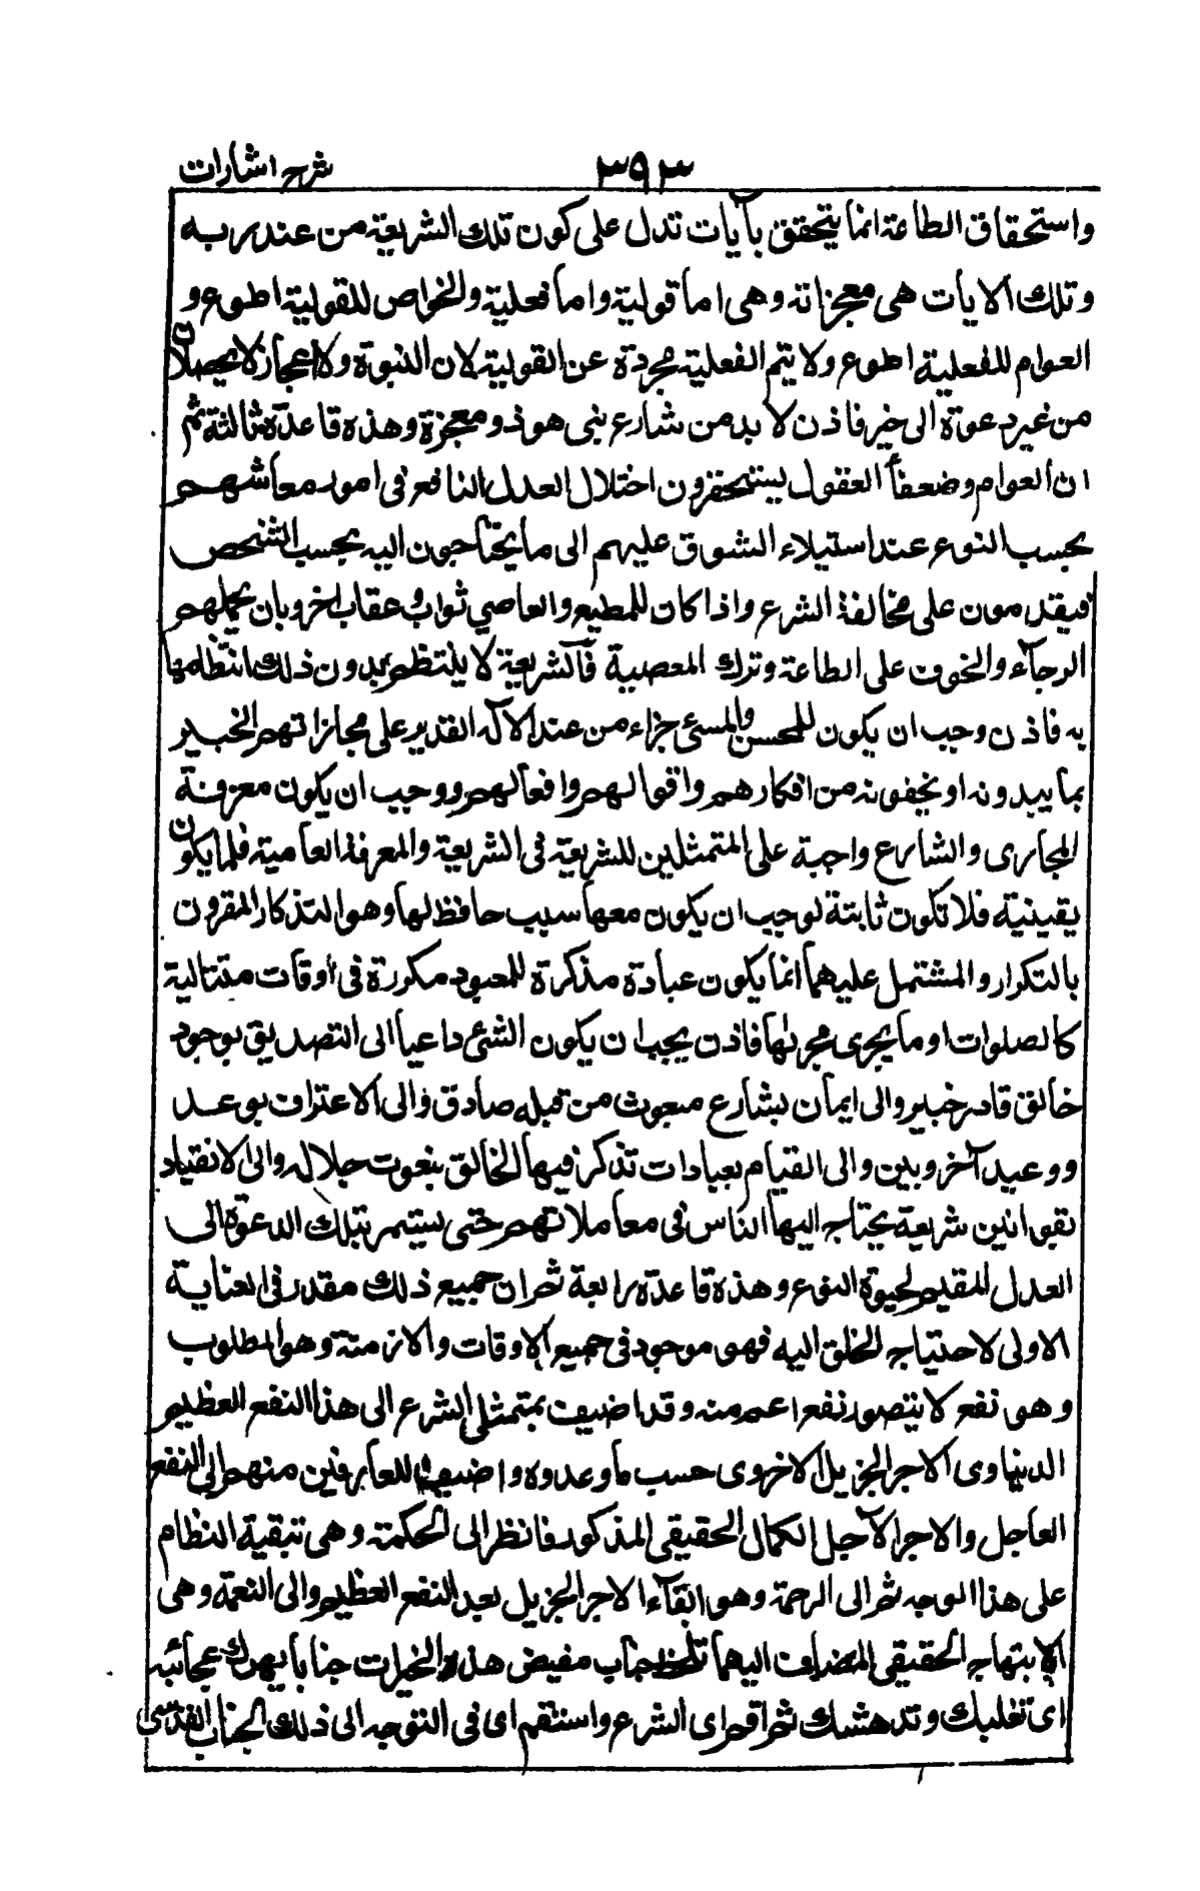 شرح اشارات ٣٩٣
واستحقاق الطاعة انما يتحقق بآيات تدل على كون تلك الشريعة من عند ربه
وتلك الايات هى معجزاته وهى اما قولية واما فعلية والخواص للقولية اطوع و
العوام للفعلية اطوع ولا يتم الفعلية مجردة عن القولية لان النبوة ولاعجاز لا يحصلان
من غير دعوة الى خير فاذن لا بد من شارع نبى هو ذو معجزة وهذه قاعدة ثالثة ثم
ان العوام وضعفآ العقول يستحقرون اختلال العدل النافع فى امور معاشهم
بحسب النوع عند استيلاء الشوق عليهم الى ما يحتاجون اليه بحسب الشخص
فيقدمون على مخالفة الشرع واذا كان للمطيع والعاصي ثواب وعقاب اخرويان يحملهم
الرجآء والخوف على الطاعة وترك المعصية فآلشريعة لا ينتظم بدون ذلك انتظامها
به فاذن وجب ان يكون للمحسن والمسئ جزاء من عند الآله القدير على مجازاتهم الخبير
بما يبدونه او يخفونه من افكارهم واقوالهم وافعالهم ووجب ان يكون معرفة
المجازى والشارع واجبة على المتمثلين للشريعة فى الشريعة والمعرفة العامية فلما يكون
يقينية فلا تكون ثابتة لوجب ان يكون معها سبب حافظ لها وهو التذكار المقرون
بالتكرار والمشتمل عليهما انما يكون عبادة مذكرة للمعبود مكررة فى اوقات متتالية
كالصلوات او ما يجرى مجرىها فاذن يجب ان يكون الشئ داعيا الى التصديق بوجود
خالق قادر خبير والى ايمان بشارع مبعوث من قبله صادق والى الاعتراف بوعد
ووعيد آخروبين والى القيام بعبادات تذكر فيها الخالق بنعوت جلاله والى الانقياد
بقوانين شريعة يحتاج اليها الناس فى معاملاتهم حتى يستمر بتلك الدعوة الى
العدل المقيم لحيوة النوع وهذه قاعدة رابعة ثم ان جميع ذلك مقدر فى العناية
الاولى لاحتياج الخلق اليه فهو موجود فى جميع الاوقات والازمنة وهو المطلوب
وهو نفع لا يتصور نفع اعم منه وقد اضيف بمتمثلى الشرع الى هذا النفع العظيم
الدنياوى الاجر الجزيل الاخروى حسب ما وعدوه واضيف للعارفين منهم الى النفع
العاجل والاجر الآجل الكمال الحقيقى المذكور فانظر الى الحكمة وهى تبقية النظام
على هذا الوجه ثم الى الرحمة وهو ايقآء الاجر الجزيل بعد النفع العظيم والى النعمة وهى
الابتهاج الحقيقى المضاف اليهما تلحظ جناب مفيض هذه الخيرات جنابا يبهرك عجائبه
اى تغلبك وتدهشك ثم اقم اى الشرع واستقم اى فى التوجه الى ذلك الجناب القدسى